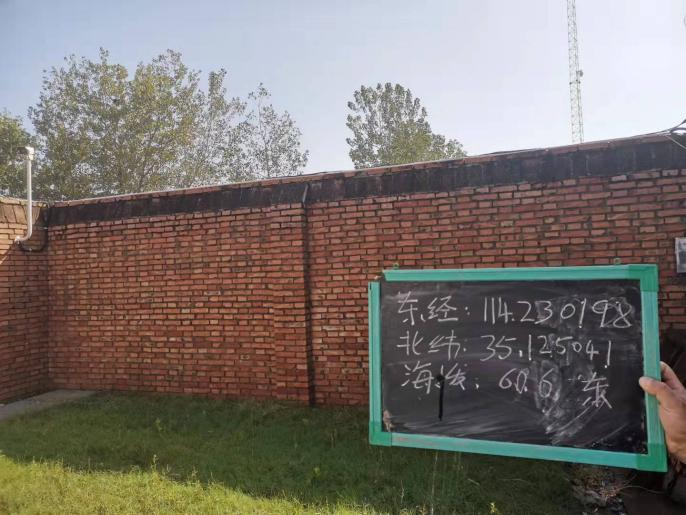 东经:114.230198
北纬:35.125041
海拔:60.6 东